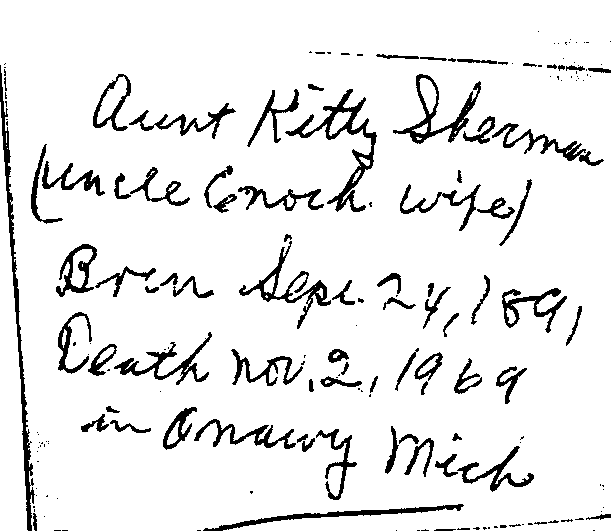 Aunt Kitty Sherman
(Uncle Enoch wife)
Born Sept. 24, 1891
Death Nov. 2, 1969
in Onawy Mich